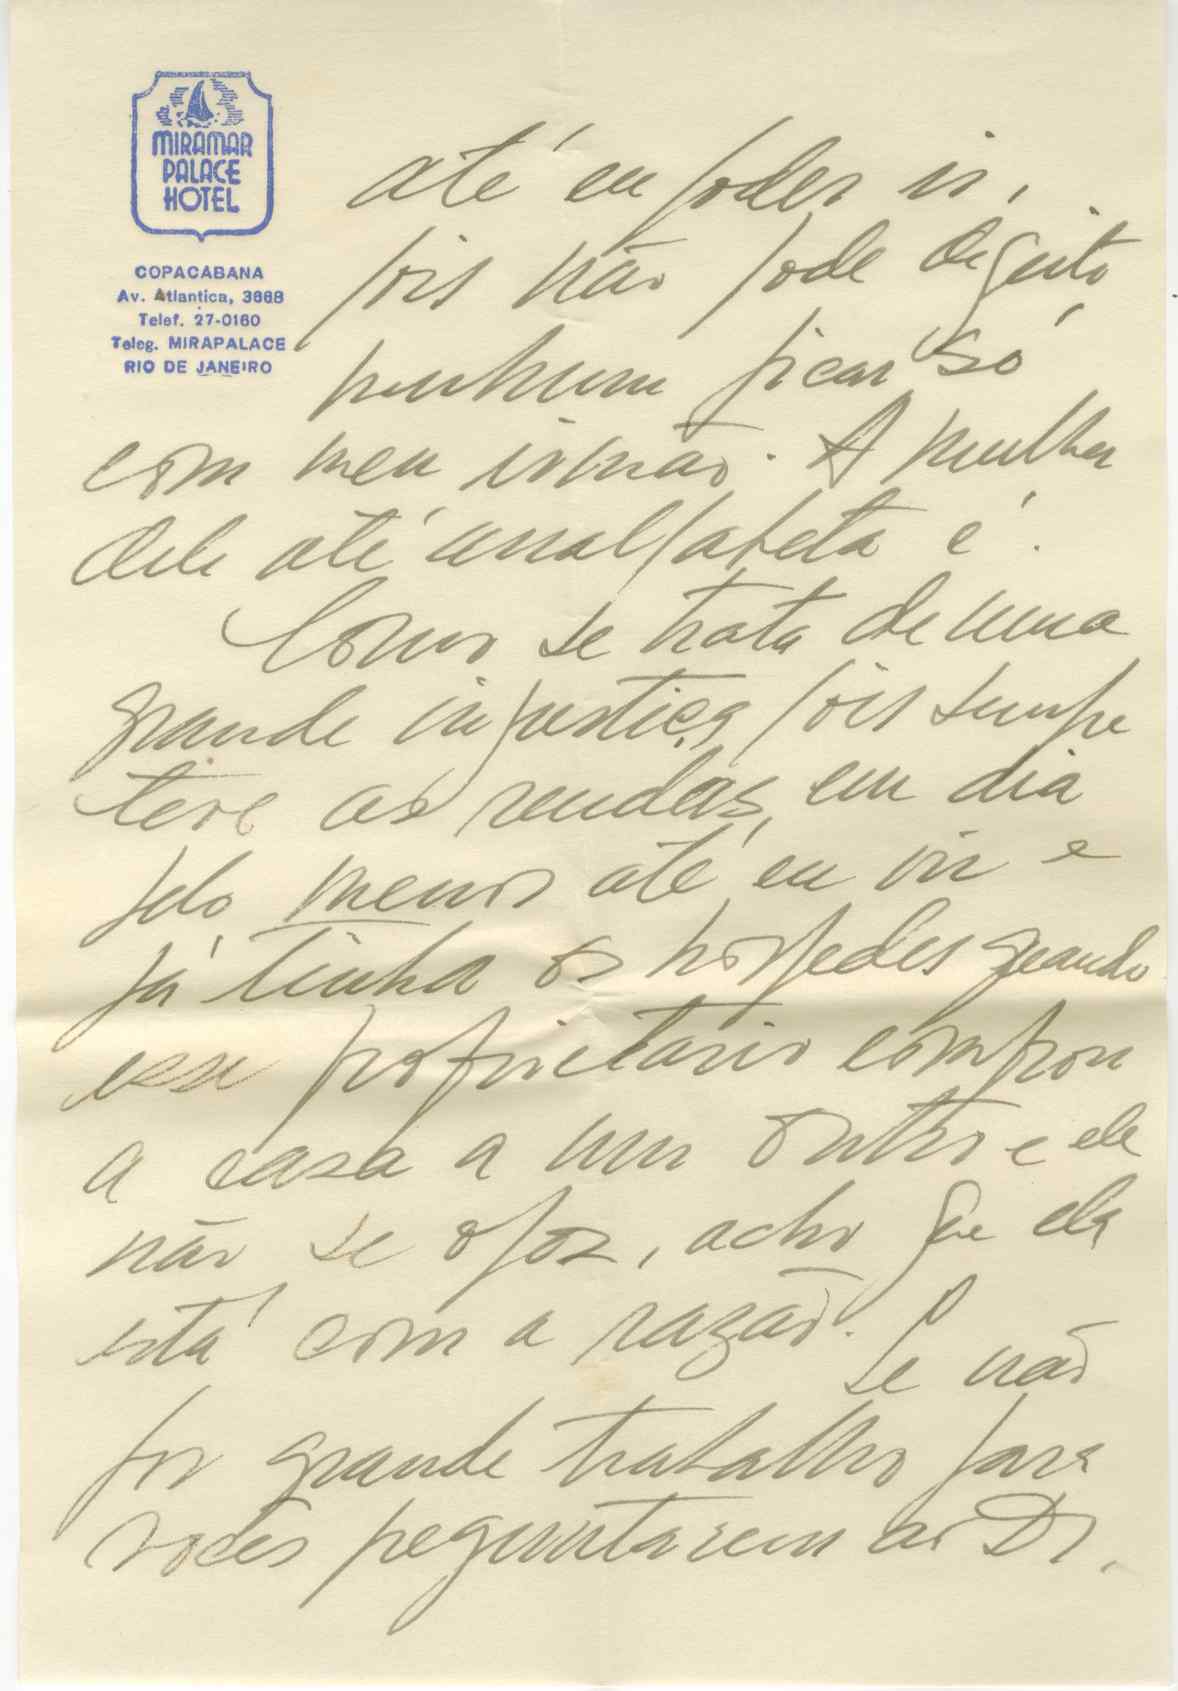 MIRAMAR
PALACE
HOTEL
COPACABANA
Av. Atlantica, 3668
Telef. 27-0160
Teleg. MIRAPALACE
RIO DE JANEIRO
até eu poder ir,
pois não pode de jeito
nenhum ficar só
com meu irmão. A mulher
dele até analfabeta é.
Como se trata de uma
grande injustiça pois sempre
teve as rendas, em dia
pelo menos até eu vir e
já tinha os hospedes quando
esse proprietario comprou
a casa a um outro e ele
não se opoz, acho que ela
está com a razão. Se não
for grande trabalho para
vocês peguntarem ao Dr.